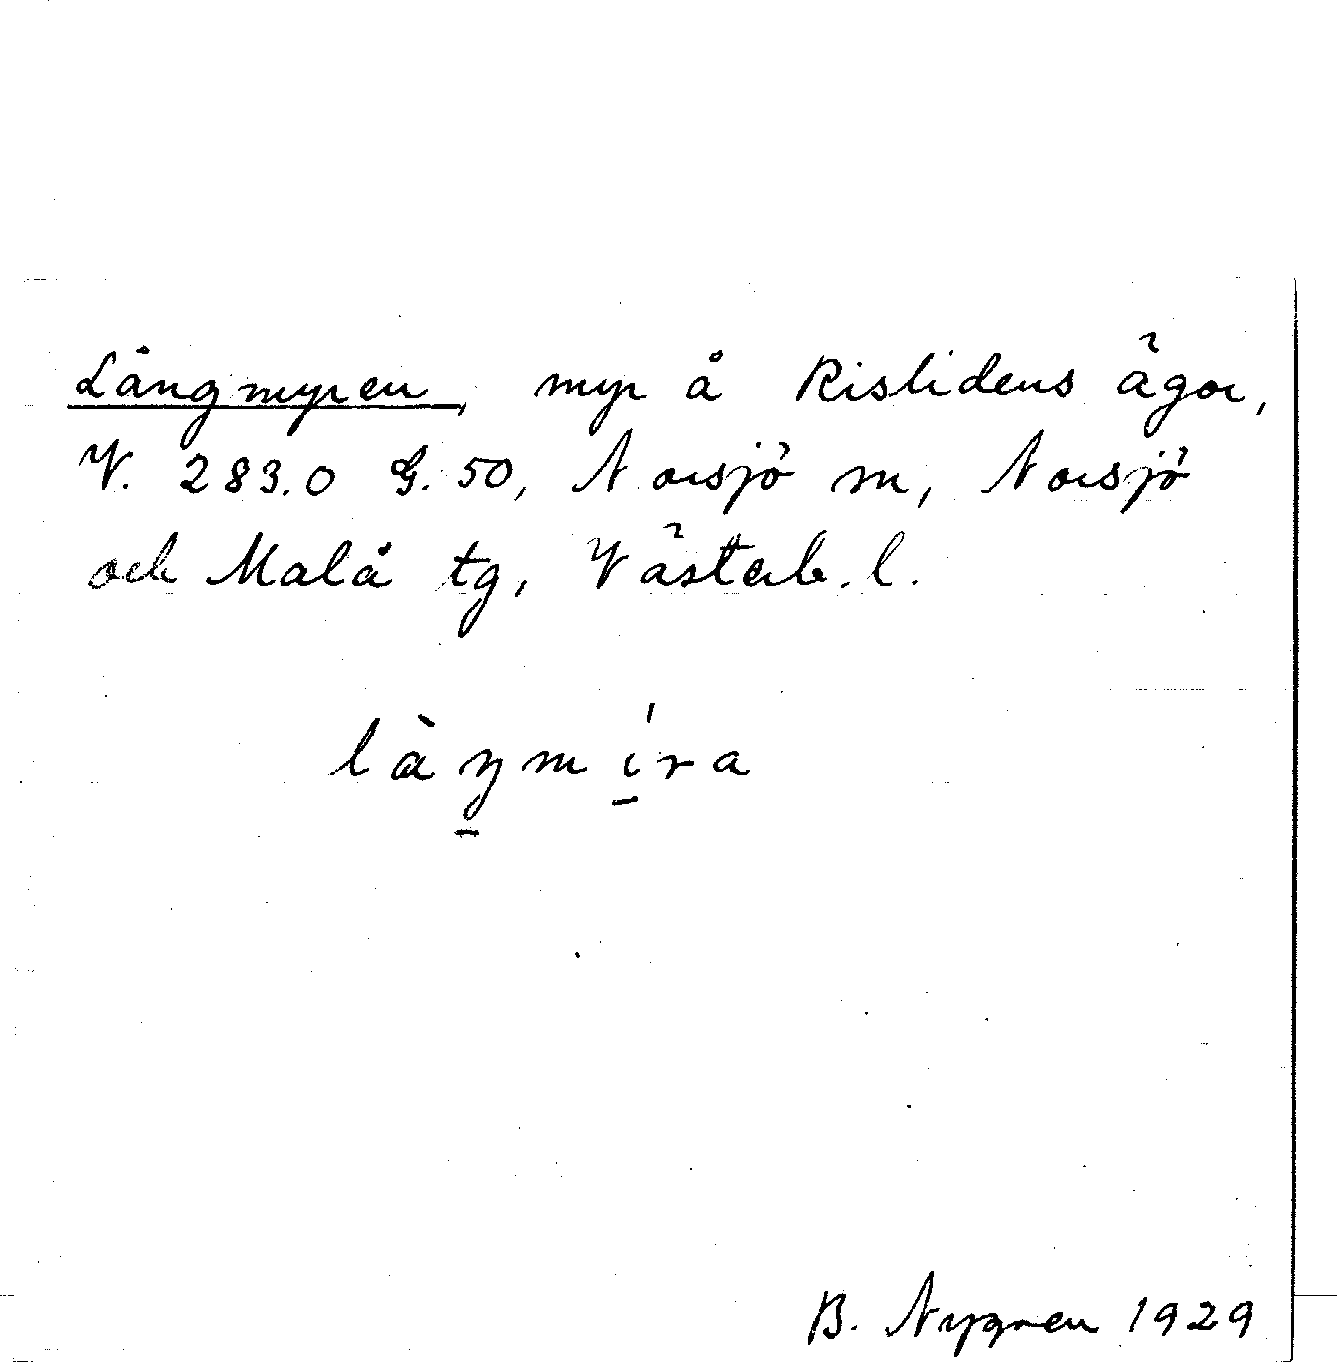 Långmyren, myr å Rislidens ägor,
V. 283.0 G. 50, Norsjö sn, Norsjö
och Malå tg, Västerb. l.
làŋmíra
B. Nygren 1929